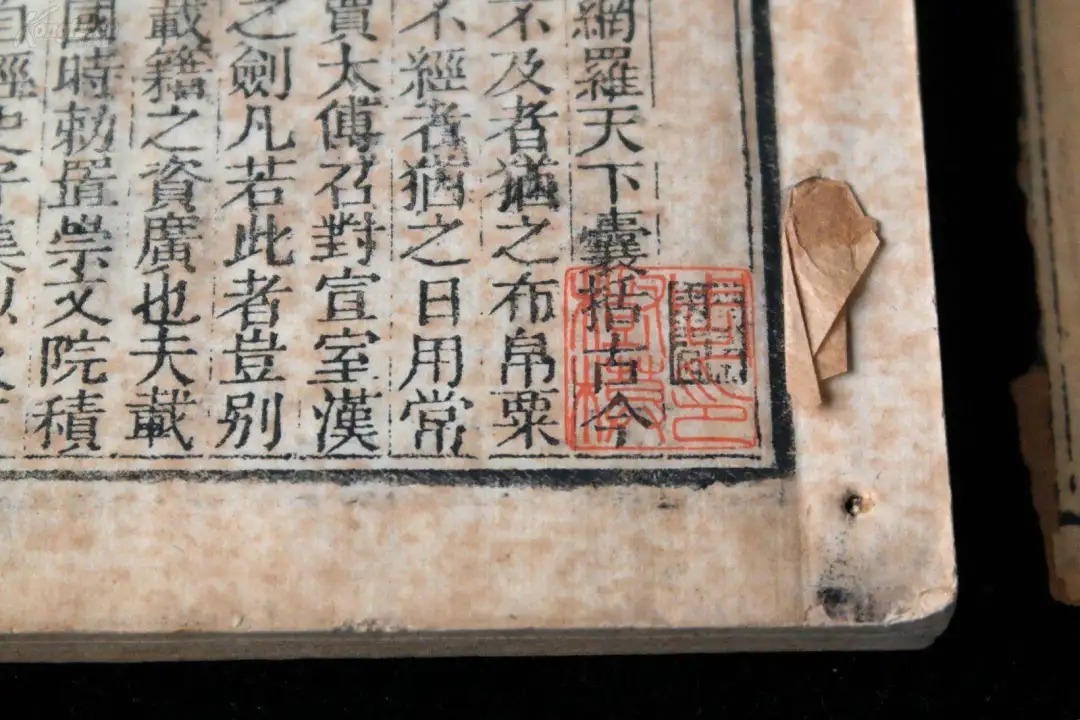 網羅天下囊括古今
不及者猶之布帛粟
不經者猶之日用常
賈太傅召對宣室漢
之劍凡若此者豈别
載籍之資廣也夫載
國時勅置崇文院積
自經史子集以及